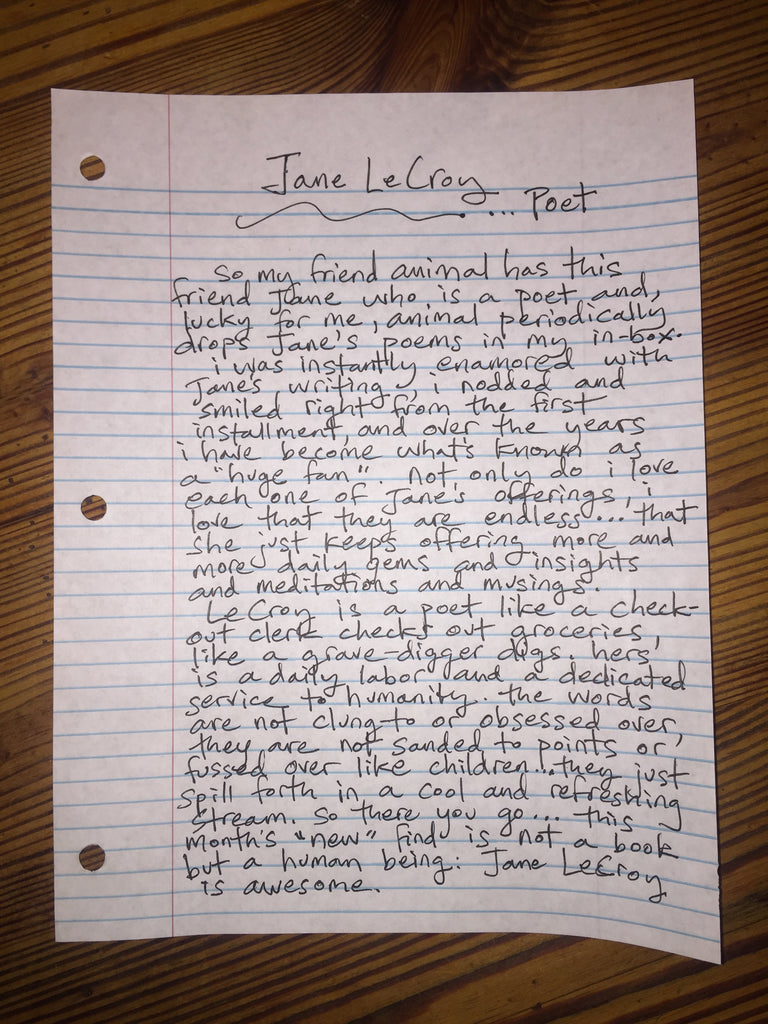 Jane LeCroy
... Poet
So my friend animal has this
friend Jane who is a poet and,
lucky for me, animal periodically
drops Jane's poems in my in-box.
i was instantly enamored with
Jane's writing, i nodded and
smiled right from the first
installment, and over the years
i have become what's known as
a "huge fan". Not only do i love
each one of Jane's offerings, i
love that they are endless... that
she just keeps offering more and
more daily gems and insights
and meditations and musings.
LeCroy is a poet like a check-
out clerk checks out groceries,
like a grave-digger digs. hers
is a daily labor and a dedicated
service to humanity. the words
are not clung-to or obsessed over,
they are not sanded to points or
fussed over like children... they just
spill forth in a cool and refreshing
stream. So there you go... this
month's "new" find is not a book
but a human being: Jane LeCroy
is awesome.